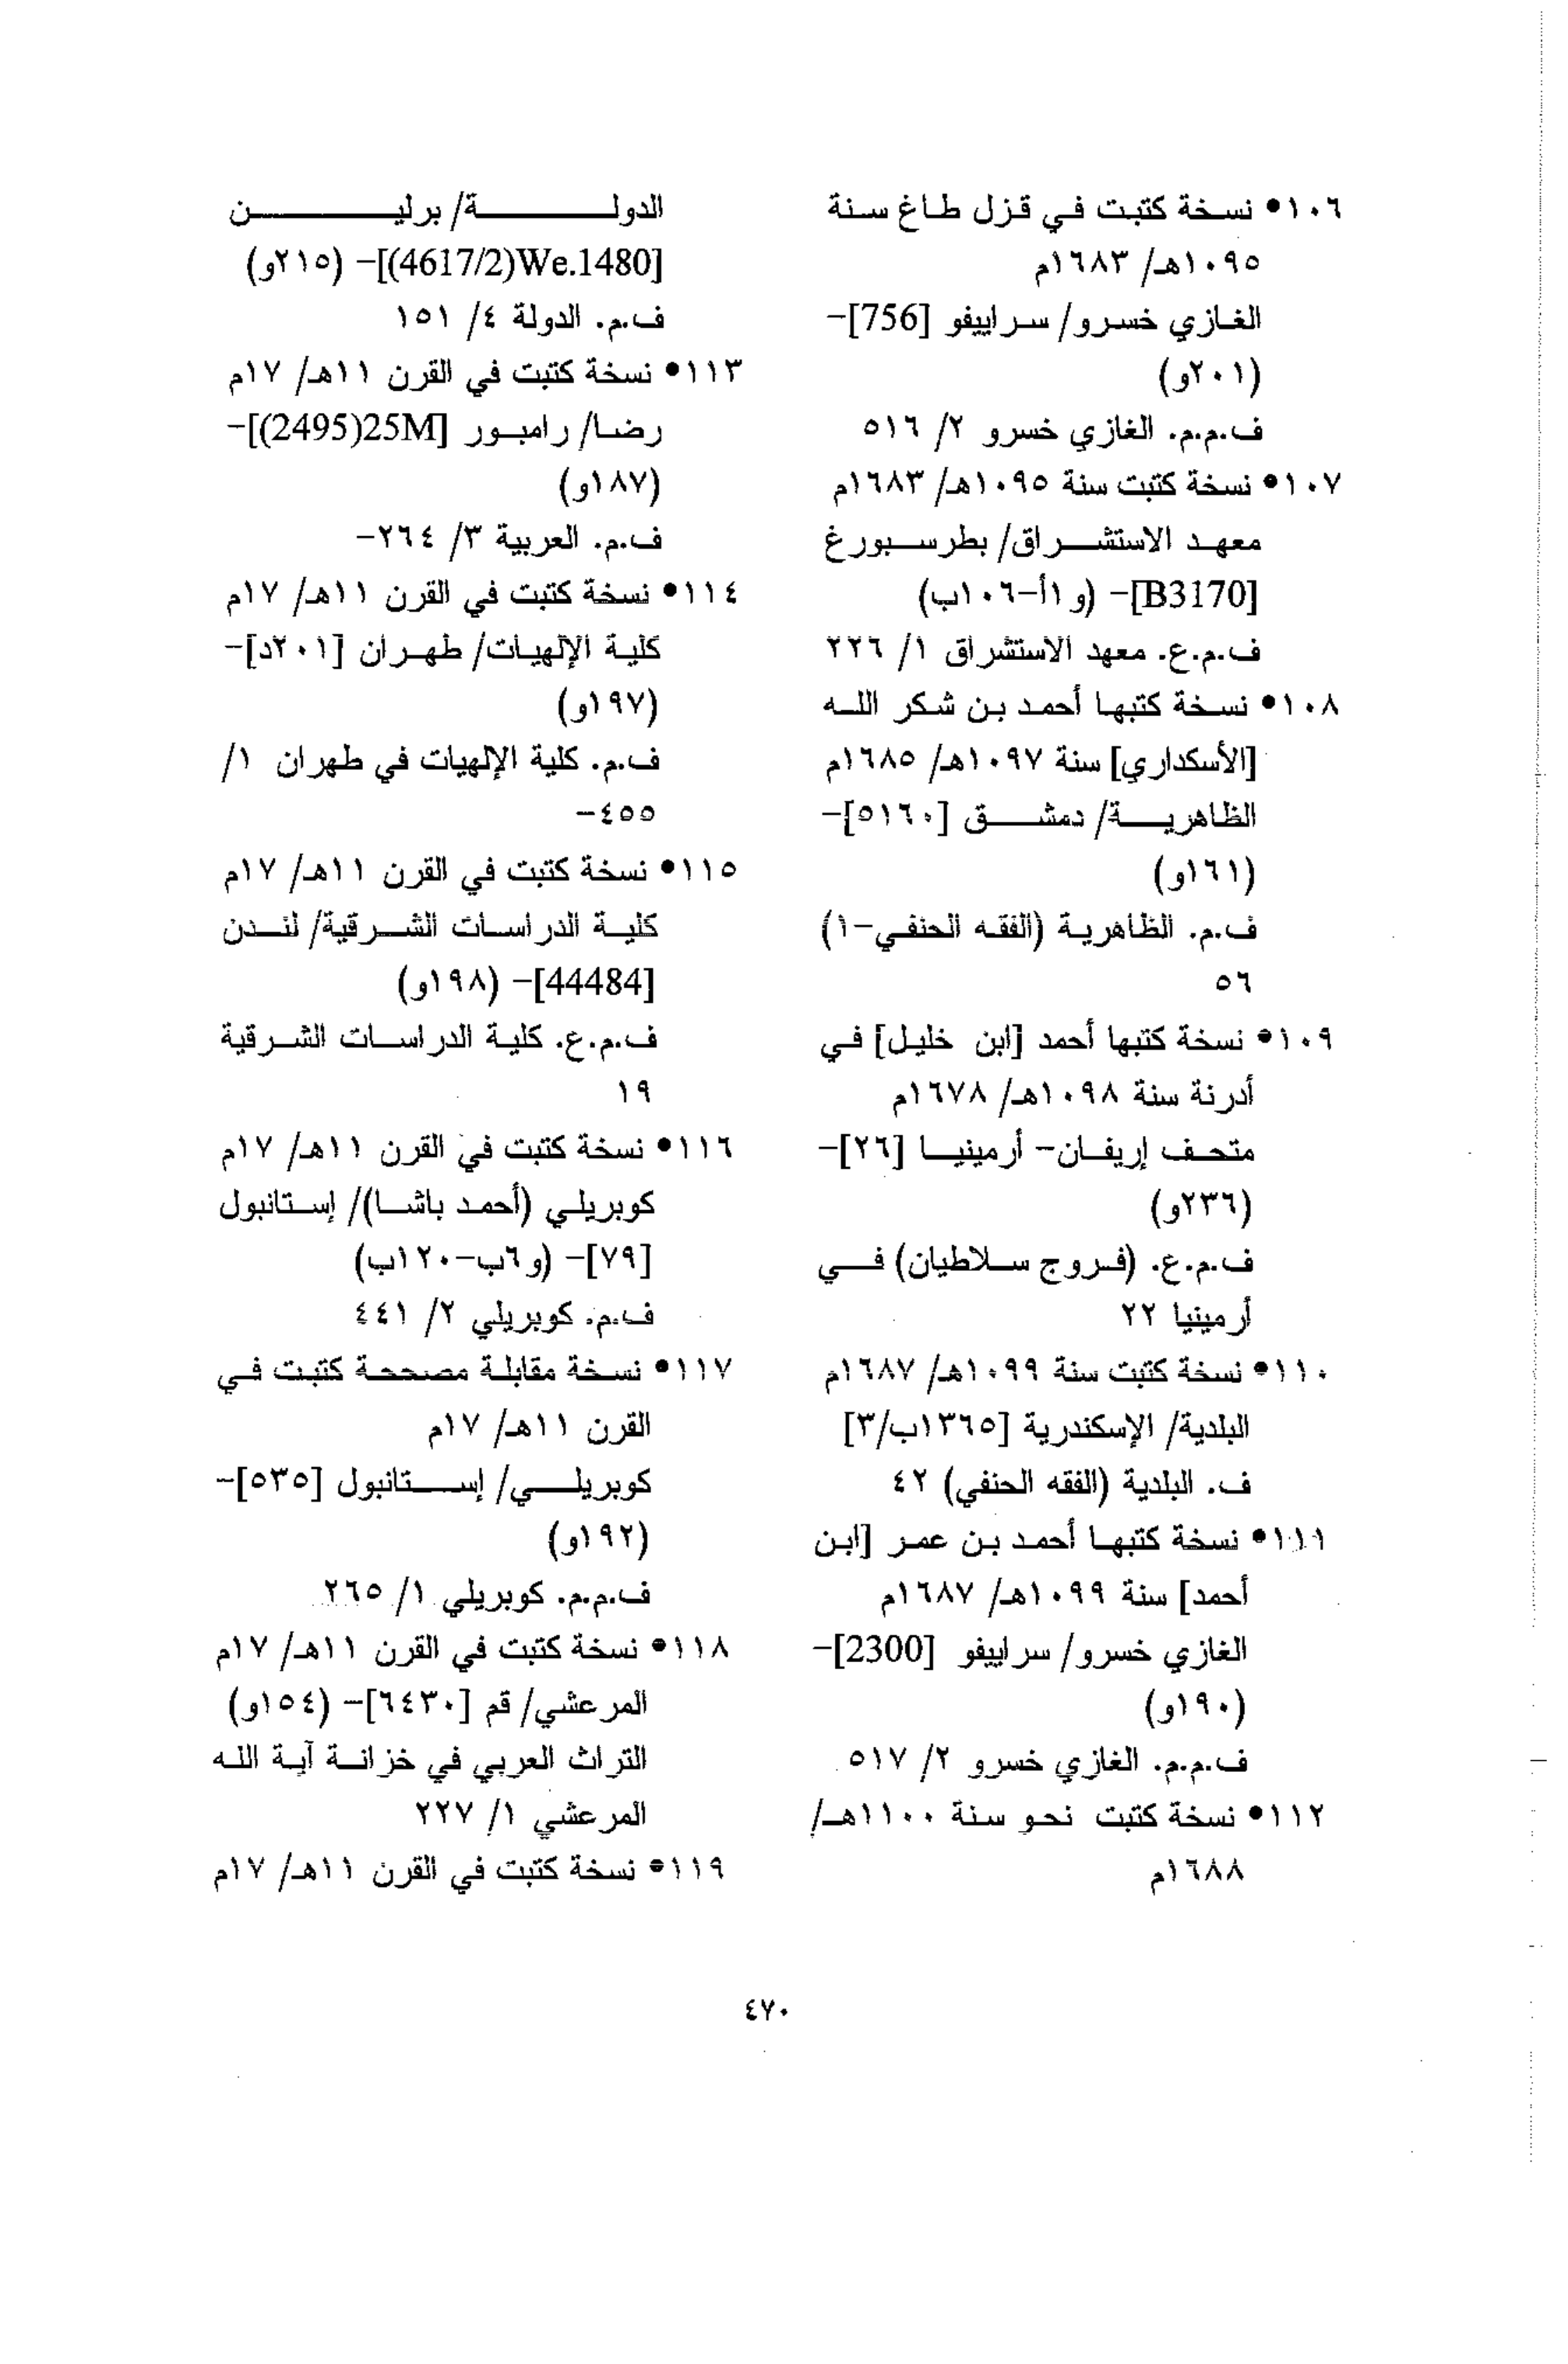 ١٠٦• نسخة كتبت في قزل طاغ سنة
١٠٩٥هـ/ ١٦٨٣م
الغازي خسرو/ سراييفو [756]-
(٢٠١و)
ف.م.م. الغازي خسرو ٢/ ٥١٦
١٠٧• نسخة كتبت سنة ١٠٩٥هـ/ ١٦٨٣م
معهد الاستشراق/ بطرسبورغ
[B3170]- (و١أ-١٠٦ب)
ف.م.ع. معهد الاستشراق ١/ ٢٢٦
١٠٨• نسخة كتبها أحمد بن شكر الله
[الأسكداري] سنة ١٠٩٧هـ/ ١٦٨٥م
الظاهرية/ دمشق [٥١٦٠]-
(١٦١و)
ف.م. الظاهرية (الفقه الحنفي-١)
٥٦
١٠٩• نسخة كتبها أحمد [ابن خليل] في
أدرنة سنة ١٠٩٨هـ/ ١٦٧٨م
متحف إريفان- أرمينيا [٢٦]-
(٢٣٦و)
ف.م.ع. (فروج سلاطيان) في
أرمينيا ٢٢
١١٠• نسخة كتبت سنة ١٠٩٩هـ/ ١٦٨٧م
البلدية/ الإسكندرية [١٣٦٥ب/٣]
ف. البلدية (الفقه الحنفي) ٤٢
١١١• نسخة كتبها أحمد بن عمر [ابن
أحمد] سنة ١٠٩٩هـ/ ١٦٨٧م
الغازي خسرو/ سراييفو [2300]-
(١٩٠و)
ف.م.م. الغازي خسرو ٢/ ٥١٧
١١٢• نسخة كتبت نحو سنة ١١٠٠هـ/
١٦٨٨م
الدولة/ برلين
[We.1480(4617/2)]- (٢١٥و)
ف.م. الدولة ٤/ ١٥١
١١٣• نسخة كتبت في القرن ١١هـ/ ١٧م
رضا/ رامبور [25M(2495)]-
(١٨٧و)
ف.م. العربية ٣/ ٢٦٤-
١١٤• نسخة كتبت في القرن ١١هـ/ ١٧م
كلية الإلهيات/ طهران [٢٠١د]-
(١٩٧و)
ف.م. كلية الإلهيات في طهران ١/
٤٥٥-
١١٥• نسخة كتبت في القرن ١١هـ/ ١٧م
كلية الدراسات الشرقية/ لندن
[44484]- (١٩٨و)
ف.م.ع. كلية الدراسات الشرقية
١٩
١١٦• نسخة كتبت في القرن ١١هـ/ ١٧م
كوبريلي (أحمد باشا)/ إستانبول
[٧٩]- (و٦ب-١٢٠ب)
ف.م. كوبريلي ٢/ ٤٤١
١١٧• نسخة مقابلة مصححة كتبت في
القرن ١١هـ/ ١٧م
كوبريلي/ إستانبول [٥٣٥]-
(١٩٢و)
ف.م.م. كوبريلي ١/ ٢٦٥
١١٨• نسخة كتبت في القرن ١١هـ/ ١٧م
المرعشي/ قم [٦٤٣٠]- (١٥٤و)
التراث العربي في خزانة آية الله
المرعشي ١/ ٢٢٧
١١٩• نسخة كتبت في القرن ١١هـ/ ١٧م
٤٧٠